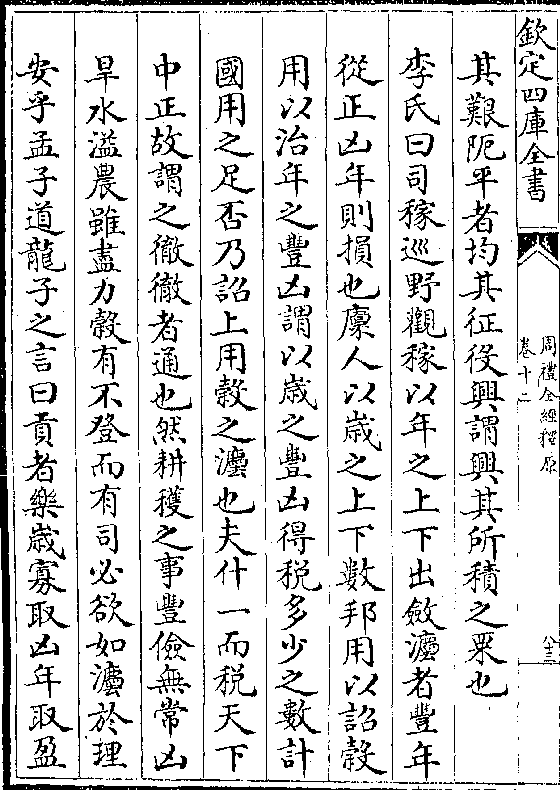 欽定四庫全書
周禮全經釋原
卷十二
其艱阨平者均其征役興謂興其所積之粟也
李氏曰司稼巡野觀稼以年之上下出斂灋者豐年
從正凶年則損也廩人以歳之上下數邦用以詔穀
用以治年之豐凶謂以歳之豐凶得税多少之數計
國用之足否乃詔上用穀之灋也夫什一而税天下
中正故謂之徹徹者通也然耕穫之事豐儉無常凶
旱水溢農雖盡力穀有不登而有司必欲如灋於理
安乎孟子道龍子之言曰貢者樂歳寡取凶年取盈